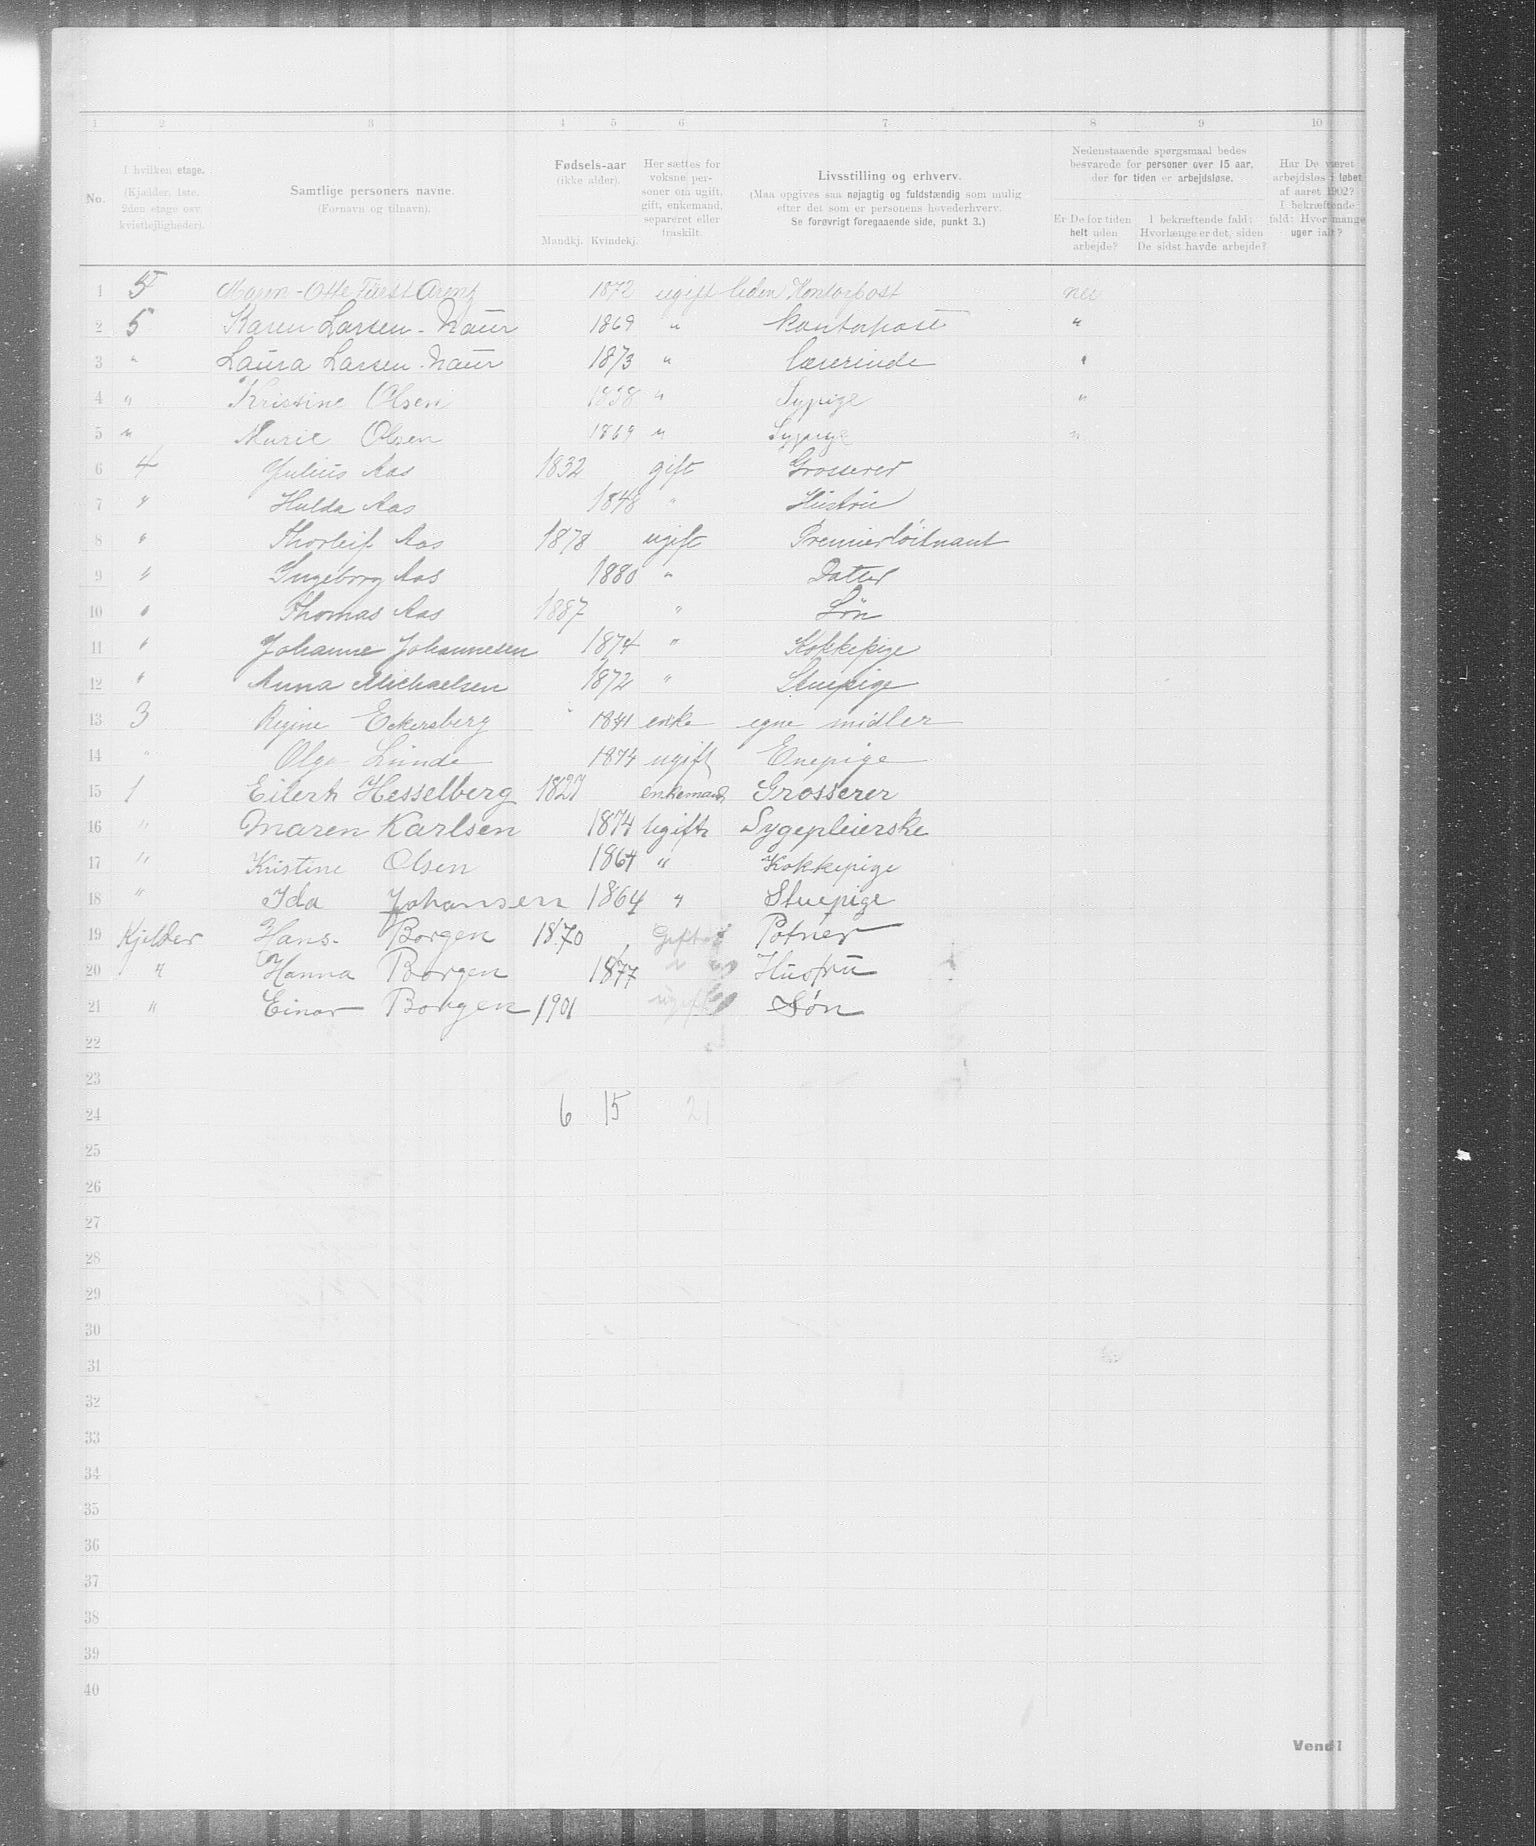 1 2 3 4 5 6 7 8 9 10
No. I hvilken etage. (Kjælder, 1ste, 2den etage osv. kvistlejligheder). Samtlige personers navne. (Fornavn og tilnavn). Fødsels-aar (ikke alder). Mandkj. Kvindekj. Her sættes for voksne personer om ugift, gift, enkemand, separeret eller fraskilt. Livsstilling og erhverv. (Maa opgives saa nøjagtig og fuldstændig som mulig efter det som er personens hovederhverv. Se forøvrigt foregaaende side, punkt 3.) Nedenstaaende spørgsmaal bedes besvarede for personer over 15 aar, der for tiden er arbejdsløse. Er De for tiden helt uden arbejde? I bekræftende fald: Hvorlænge er det, siden De sidst havde arbejde? Har De været arbejdsløs i løbet af aaret 1902? I bekræftende fald: Hvor mange uger ialt?
1 5 1872 ugift Uden Kontorpost nei
2 5 Karen Larsen-Naur 1869 " Kontorpost "
3 " Laura Larsen-Naur 1873 " Lærerinde "
4 " Kristine Olsen 1858 " Sypige "
5 " Marie Olsen 1869 " Sypige "
6 4 Julius Aas 1832 gift Grosserer
7 " Hulda Aas 1848 " Hustru
8 " Thorleif Aas 1878 ugift Premierløitnant
9 " Ingeborg Aas 1880 " Datter
10 " Thomas Aas 1887 " Søn
11 " Johanne Johannesen 1874 " Kokkepige
12 " Anna Michaelsen 1872 " Stuepige
13 3 Regine Eckersberg 1841 enke egne midler
14 " Olga Lunde 1874 ugift Enepige
15 1 Eilert Hesselberg 1827 enkemand Grosserer
16 " Maren Karlsen 1874 Ugift Sygepleierske
17 " Kristine Olsen 1864 " Kokkepige
18 " Ida Johansen 1864 " Stuepige
19 Kjelder Hans Borgen 1870 Gift Potner
20 " Hanna Borgen 1877 " Husfru
21 " Einar Borgen 1901 ugift Søn
22
23
24 6 15 21
25
26
27
28
29
30
31
32
33
34
35
36
37
38
39
40
Vend!